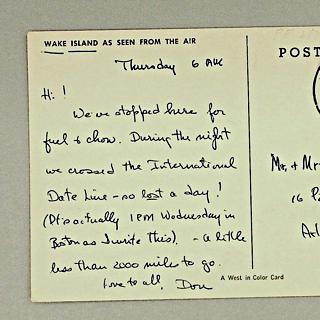 WAKE ISLAND AS SEEN FROM THE AIR
Thursday 6 AM
Hi!
We've stopped here for
fuel & chow. During the night
we crossed the International
Date Line - so lost a day!
(It's actually 1 PM Wednesday in
Boston as I write this). - a little
less than 2000 miles to go.
Love to all, Don
A West in Color Card
POST
Mr. & Mr
16 P